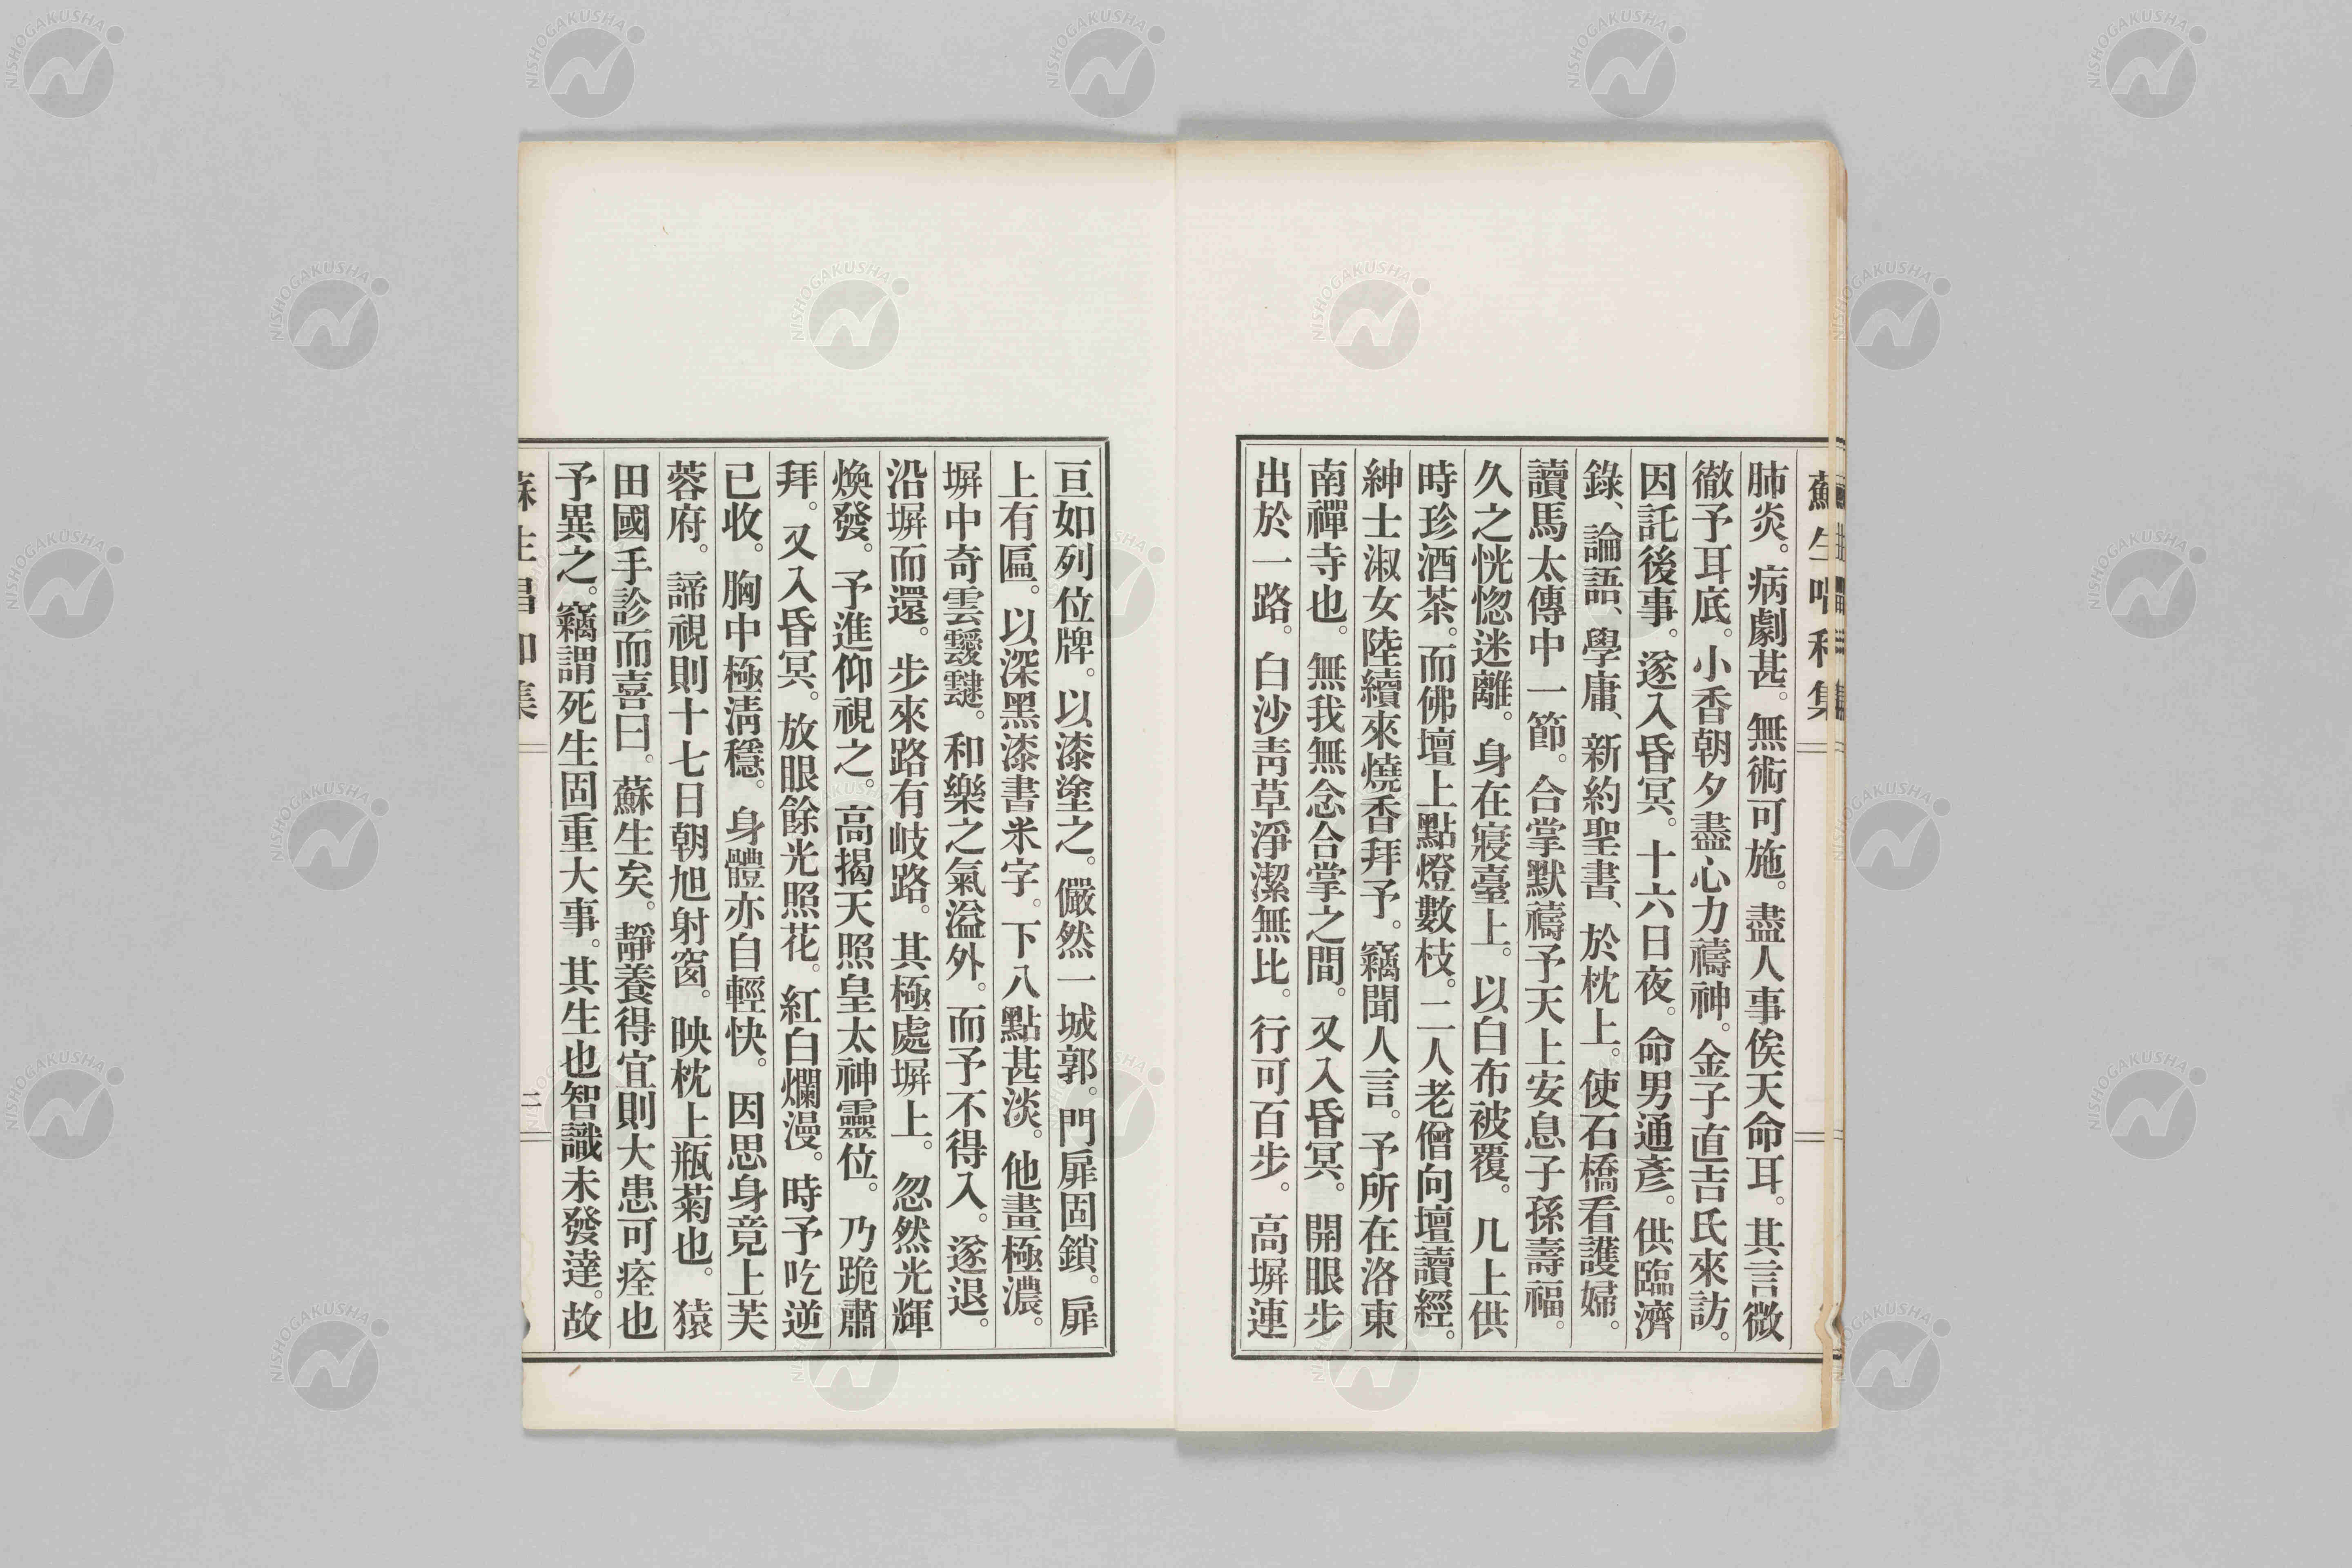 蘇生唱和集
肺炎。病劇甚。無術可施。盡人事俟天命耳。其言微
徹予耳底。小香朝夕盡心力禱神。金子直吉氏來訪。
因託後事。遂入昏冥。十六日夜。命男通彥。供臨濟
錄、論語、學庸、新約聖書、於枕上。使石橋看護婦。
讀馬太傳中一節。合掌默禱予天上安息子孫壽福。
久之恍惚迷離。身在寢臺上。以白布被覆。几上供
時珍酒茶。而佛壇上點燈數枝。二人老僧向壇讀經。
紳士淑女陸續來燒香拜予。竊聞人言。予所在洛東
南禪寺也。無我無念合掌之間。又入昏冥。開眼步
出於一路。白沙靑草淨潔無比。行可百步。高塀連
亘如列位牌。以漆塗之。儼然一城郭。門扉固鎖。扉
上有匾。以深黑漆書米字。下八點甚淡。他畫極濃。
塀中奇雲靉靆。和樂之氣溢外。而予不得入。遂退。
沿塀而還。步來路有岐路。其極處塀上。忽然光輝
煥發。予進仰視之。高揭天照皇太神靈位。乃跪肅
拜。又入昏冥。放眼餘光照花。紅白爛漫。時予吃逆
已收。胸中極淸穩。身體亦自輕快。因思身竟上芙
蓉府。諦視則十七日朝旭射窗。映枕上瓶菊也。猿
田國手診而喜曰。蘇生矣。靜養得宜則大患可痊也
予異之。竊謂死生固重大事。其生也智識未發達。故
蘇生唱和集
二
NISHOGAKUSHA